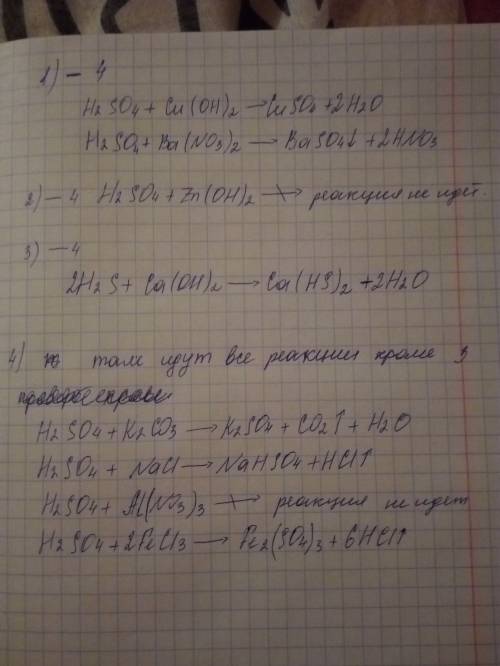 1) - 4
H₂SO₄ + Cu(OH)₂ → CuSO₄ + 2H₂O
H₂SO₄ + Ba(NO₃)₂ → BaSO₄↓ + 2HNO₃
2) - 4 H₂SO₄ + Zn(OH)₂ ↛ реакция не идет.
3) - 4
2H₂S + Ca(OH)₂ → Ca(HS)₂ + 2H₂O
4) там идут все реакции кроме 3
H₂SO₄ + K₂CO₃ → K₂SO₄ + CO₂↑ + H₂O
H₂SO₄ + NaCl → NaHSO₄ + HCl↑
H₂SO₄ + Al(NO₃)₃ ↛ реакция не идет
H₂SO₄ + 2FeCl₃ → Fe₂(SO₄)₃ + 6HCl↑